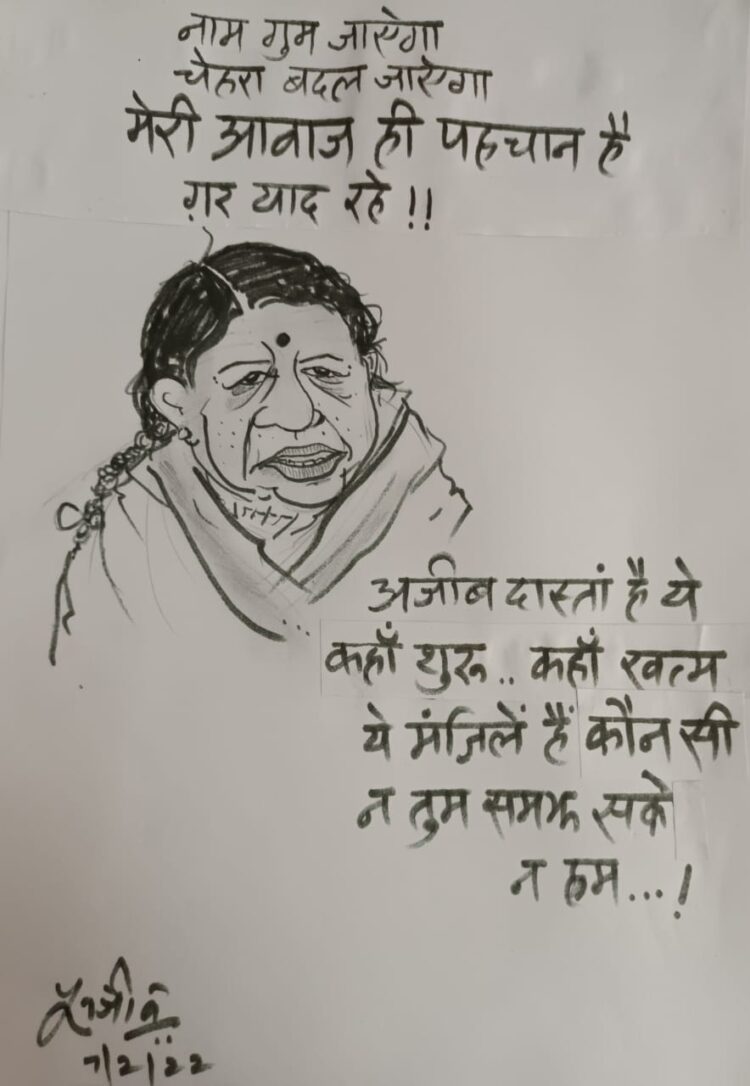 नाम गुम जाएेगा
चेहरा बदल जाएेगा
मेरी आवाज ही पहचान है
ग़र याद रहे !!
अजीब दास्तां है ये
कहाँ शुरू .. कहाँ खत्म
ये मंज़िलें हैं कौन सी
न तुम समझ सके
न हम...!
7/2/22